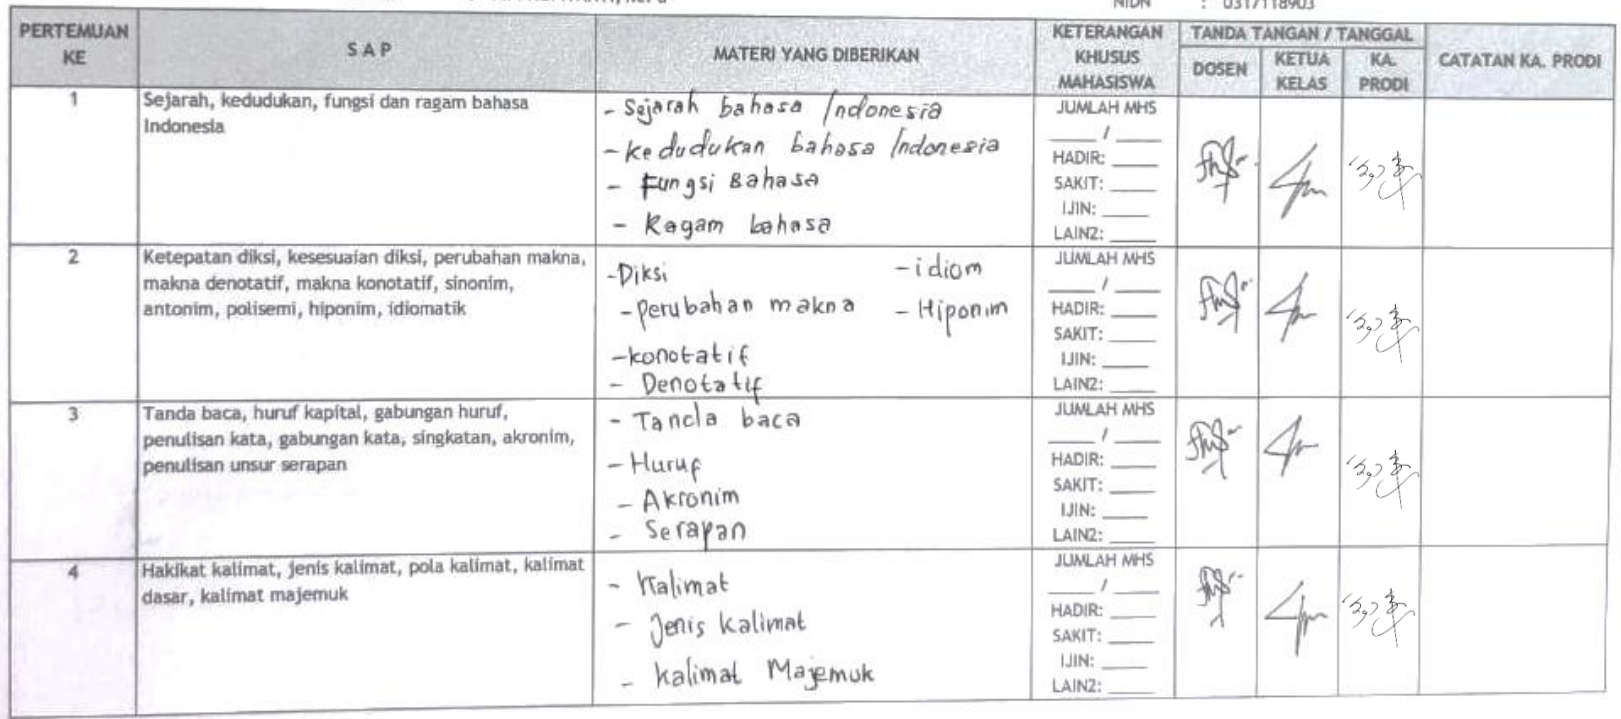 NIDN : 0317118903
PERTEMUAN KE
S A P
MATERI YANG DIBERIKAN
KETERANGAN KHUSUS MAHASISWA
TANDA TANGAN / TANGGAL
DOSEN
KETUA KELAS
KA. PRODI
CATATAN KA. PRODI
1
Sejarah, kedudukan, fungsi dan ragam bahasa
Indonesia
- Sejarah bahasa Indonesia
- Kedudukan bahasa Indonesia
- Fungsi Bahasa
- Ragam bahasa
JUMLAH MHS
____ / ____
HADIR: ____
SAKIT: ____
IJIN: ____
LAIN2: ____
2
Ketepatan diksi, kesesuaian diksi, perubahan makna,
makna denotatif, makna konotatif, sinonim,
antonim, polisemi, hiponim, idiomatik
- Diksi - idiom
- Perubahan makna - Hiponim
- konotatif
- Denotatif
JUMLAH MHS
____ / ____
HADIR: ____
SAKIT: ____
IJIN: ____
LAIN2: ____
3
Tanda baca, huruf kapital, gabungan huruf,
penulisan kata, gabungan kata, singkatan, akronim,
penulisan unsur serapan
- Tanda baca
- Huruf
- Akronim
- Serapan
JUMLAH MHS
____ / ____
HADIR: ____
SAKIT: ____
IJIN: ____
LAIN2: ____
4
Hakikat kalimat, jenis kalimat, pola kalimat, kalimat
dasar, kalimat majemuk
- Kalimat
- Jenis Kalimat
- Kalimat Majemuk
JUMLAH MHS
____ / ____
HADIR: ____
SAKIT: ____
IJIN: ____
LAIN2: ____